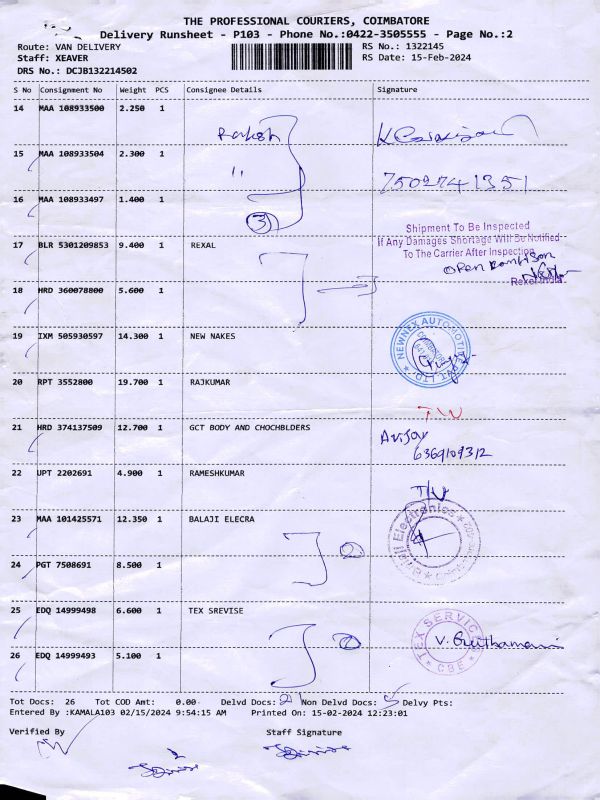 THE PROFESSIONAL COURIERS, COIMBATORE
Delivery Runsheet - P103 - Phone No.:0422-3505555 - Page No.:2
Route: VAN DELIVERY RS No.: 1322145
Staff: XEAVER RS Date: 15-Feb-2024
DRS No.: DCJB132214502
S No Consignment No Weight PCS Consignee Details Signature
14 MAA 108933500 2.250 1
Rakesh
15 MAA 108933504 2.300 1 "
7502741351
16 MAA 108933497 1.400 1
3
Shipment To Be Inspected
If Any Damages Shortage Will Be Notified
To The Carrier After Inspection
17 BLR 5301209853 9.400 1 REXAL
Rexel India
18 HRD 360078800 5.600 1
19 IXM 505930597 14.300 1 NEW NAKES
NEWNEX AUTOMOTIVE PVT LTD.
20 RPT 3552800 19.700 1 RAJKUMAR
21 HRD 374137509 12.700 1 GCT BODY AND CHOCHBLDERS
6369109312
22 UPT 2202691 4.900 1 RAMESHKUMAR
23 MAA 101425571 12.350 1 BALAJI ELECRA
Balaji Electronics
2
24 PGT 7508691 8.500 1
25 EDQ 14999498 6.600 1 TEX SREVISE
TEX SERVICES
CBE
2
26 EDQ 14999493 5.100 1
Tot Docs: 26 Tot COD Amt: 0.00 Delvd Docs: 21 Non Delvd Docs: 5 Delvy Pts:
Entered By :KAMALA103 02/15/2024 9:54:15 AM Printed On: 15-02-2024 12:23:01
Verified By Staff Signature